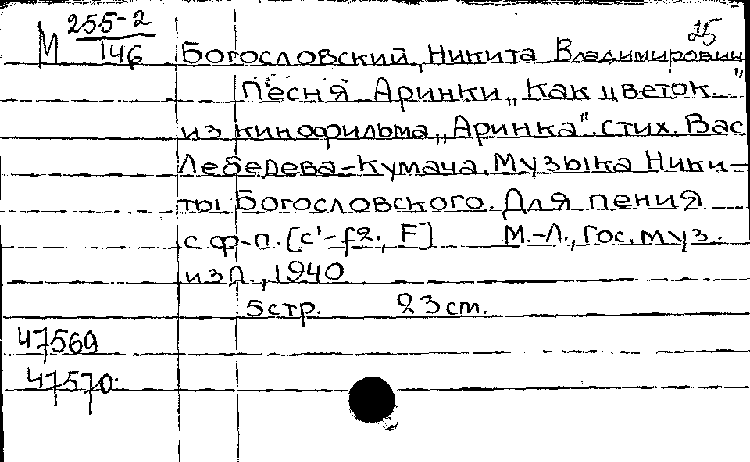 М 255-2
146
25
Богословский, Никита Владимирович
Песня Аринки „Как цветок."
из кинофильма „Аринка". стих. Вас
Лебедева-Кумача. Музыка Ники-
ты Богословского. Для пения
с ф-п. [c'-f2., F] М.-Л., Гос. муз.
изд., 1940
5 стр. 23 см.
47569
47570